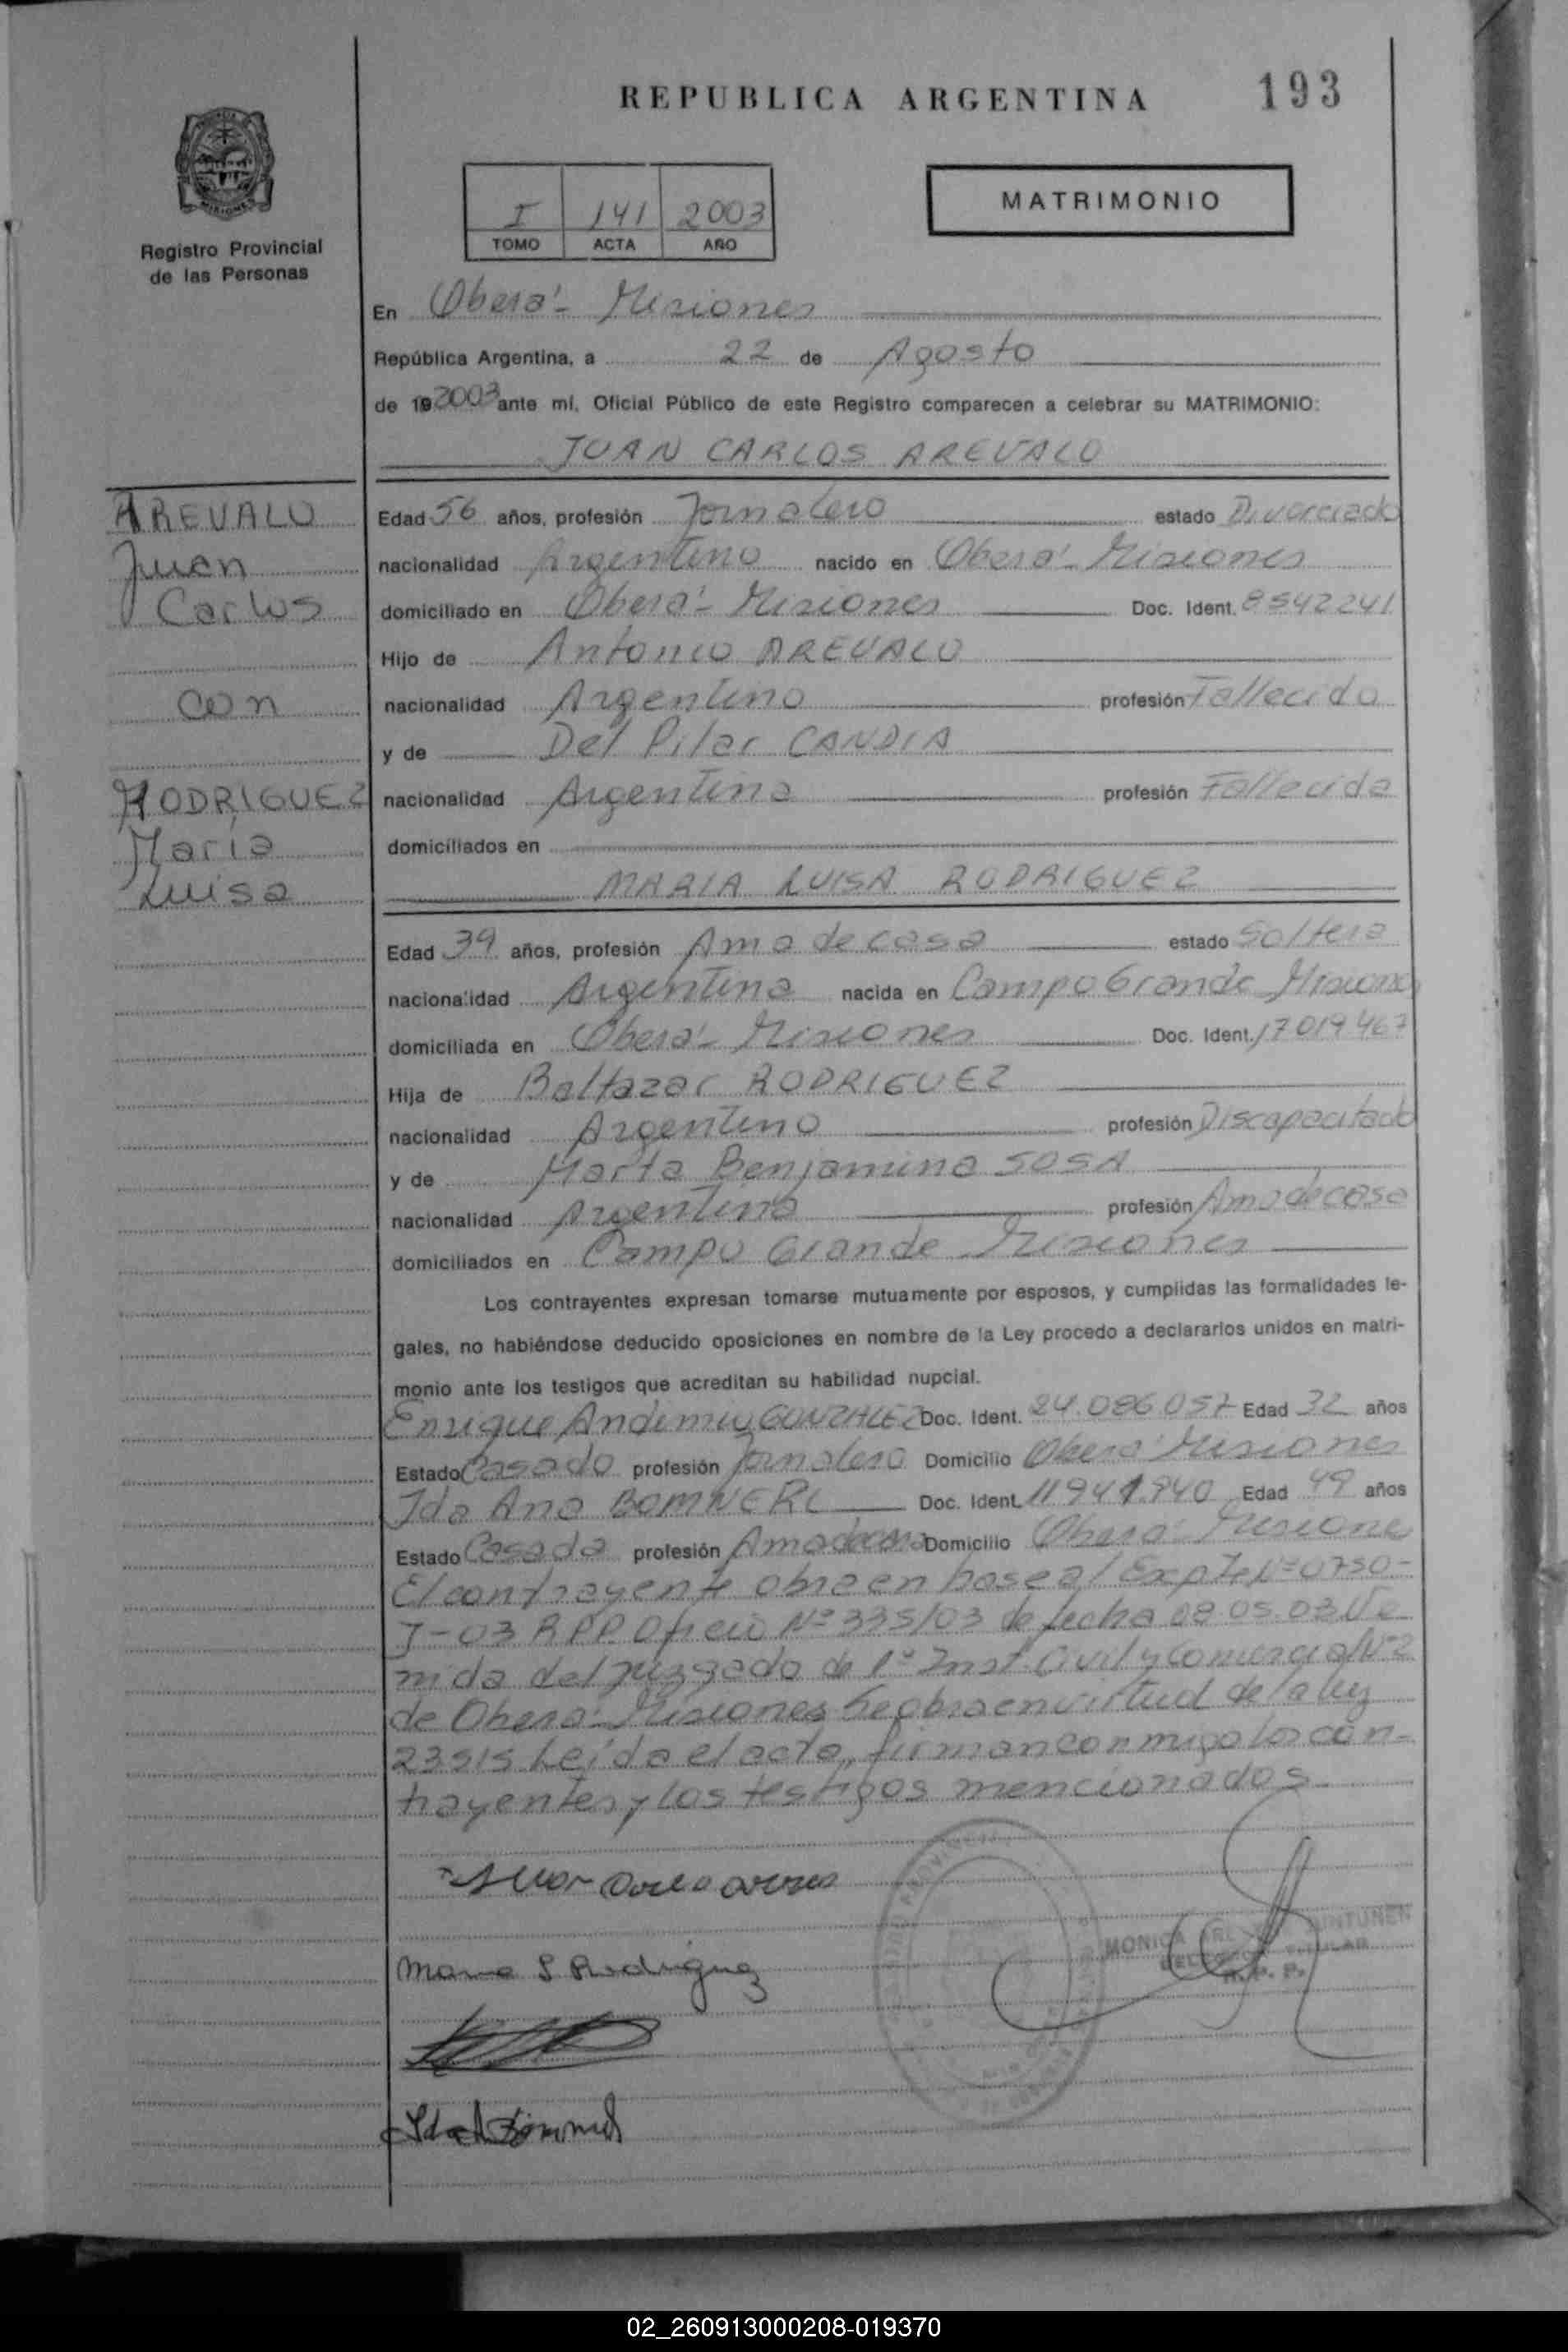 REPUBLICA ARGENTINA
193
MISIONES
Registro Provincial
de las Personas
I 141 2003
TOMO ACTA AÑO
MATRIMONIO
En Oberá - Misiones
República Argentina, a 22 de Agosto
de 19 2003 ante mí, Oficial Público de este Registro comparecen a celebrar su MATRIMONIO:
JUAN CARLOS AREVALO
AREVALO
Juan
Carlos
con
RODRIGUEZ
María
Luisa
Edad 56 años, profesión Jornalero estado Divorciado
nacionalidad Argentino nacido en Oberá - Misiones
domiciliado en Oberá - Misiones Doc. Ident. 8542241
Hijo de Antonio AREVALO
nacionalidad Argentino profesión Fallecido
y de Del Pilar CANDIA
nacionalidad Argentina profesión Fallecida
domiciliados en
MARIA LUISA RODRIGUEZ
Edad 39 años, profesión Ama de casa estado Soltera
nacionalidad Argentina nacida en Campo Grande Misiones
domiciliada en Oberá - Misiones Doc. Ident. 17019467
Hija de Baltazar RODRIGUEZ
nacionalidad Argentino profesión Discapacitado
y de Marta Benjamina SOSA
nacionalidad Argentina profesión Ama de casa
domiciliados en Campo Grande Misiones
Los contrayentes expresan tomarse mutuamente por esposos, y cumplidas las formalidades le-
gales, no habiéndose deducido oposiciones en nombre de la Ley procedo a declararlos unidos en matri-
monio ante los testigos que acreditan su habilidad nupcial.
Enrique GONZALEZ Doc. Ident. 24.086.057 Edad 32 años
Estado Casado profesión Jornalero Domicilio Oberá Misiones
Ida Ana Doc. Ident. 11941.940 Edad 49 años
Estado Casada profesión Ama de casa Domicilio Oberá - Misione
El contrayente obra en base al Expte Nº 0750-
J-03 R.P.P. Oficio Nº 335/03 de fecha 08.05.03 Ve
nida del juzgado de 1º Inst. Civil y Comercial Nº 2
de Oberá - Misiones Se obra en virtud de la ley
23.515 Leída el acta, firman conmigo los con-
trayentes y los testigos mencionados
Maria L Rodriguez
MONICA
TITULAR
R. P. P.
02_260913000208-019370